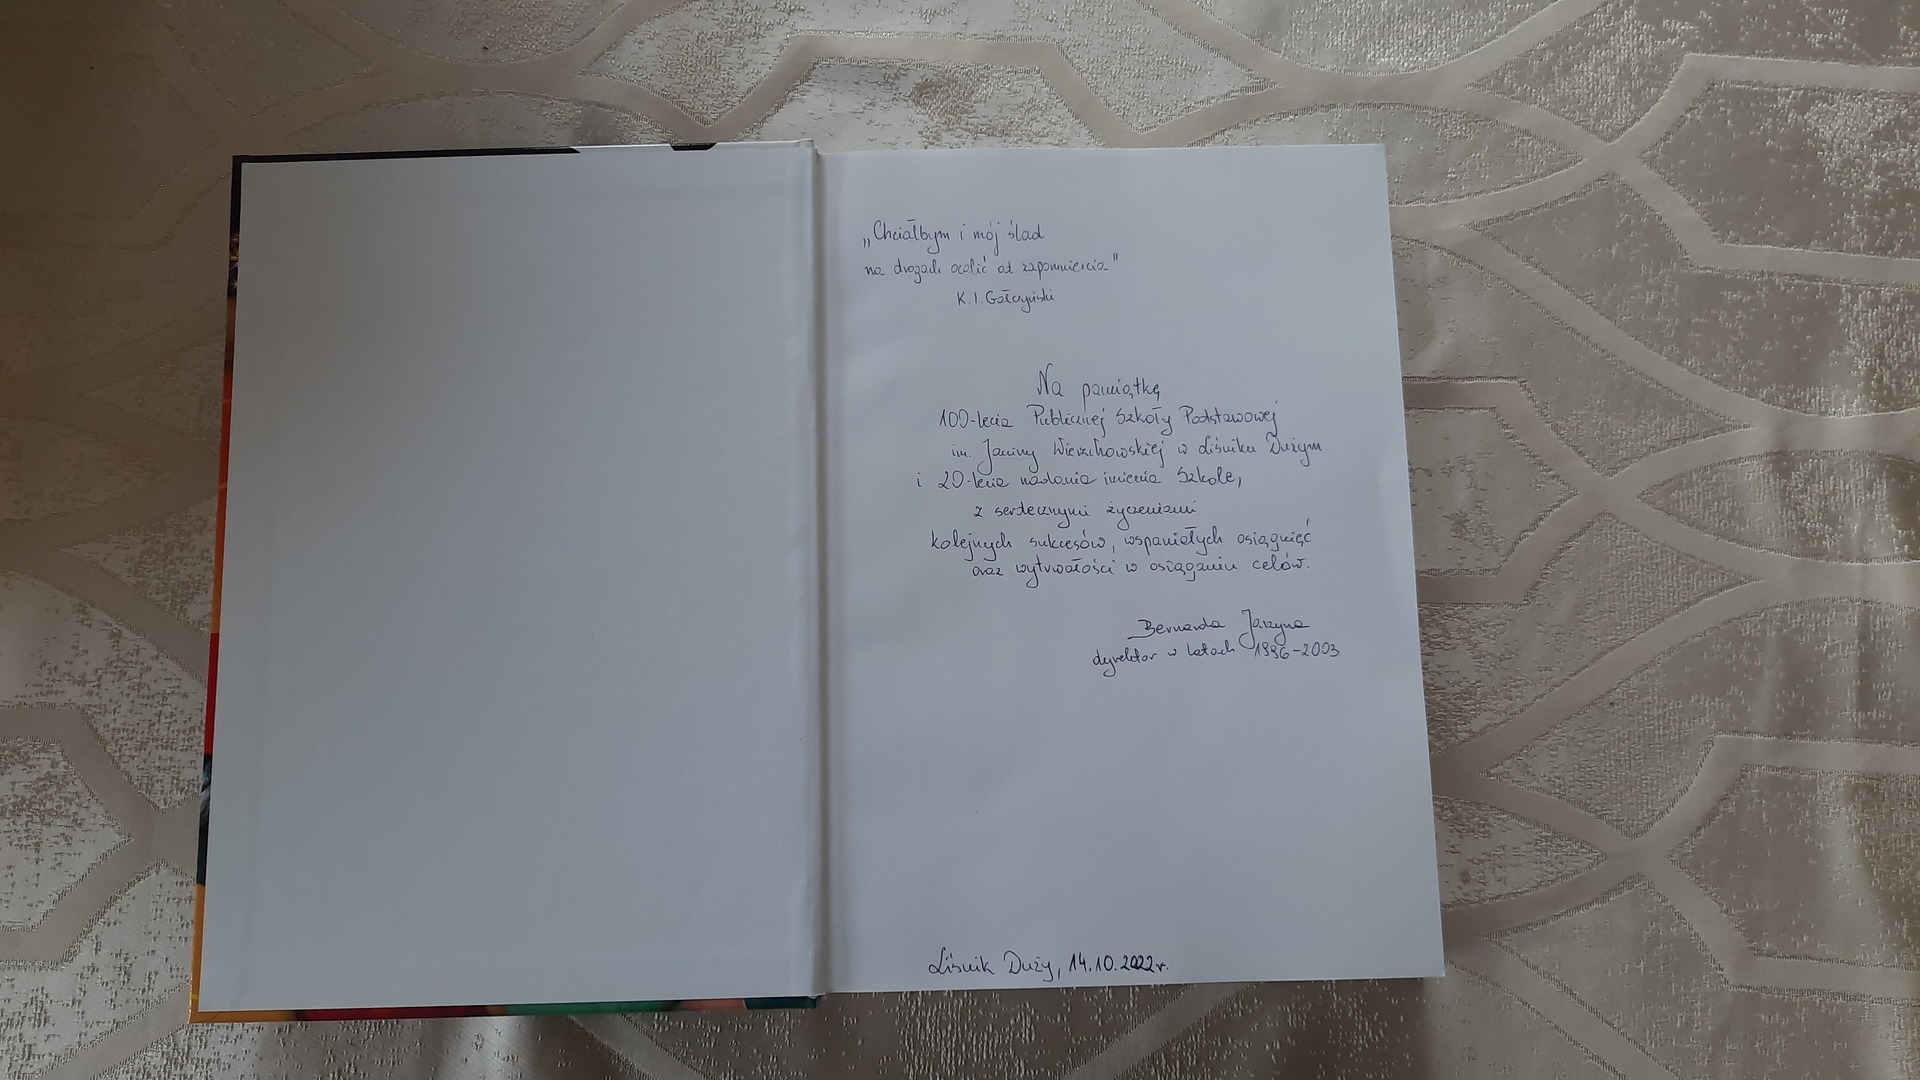 „Chciałbym i mój ślad
na drogach ocalić od zapomnienia"
K. I. Gałczyński
Na pamiątkę
100-lecia Publicznej Szkoły Podstawowej
im. Janiny Wierzchowskiej w Liśniku Dużym
i 20-lecia nadania imienia Szkole,
z serdecznymi życzeniami
kolejnych sukcesów, wspaniałych osiągnięć
oraz wytrwałości w osiąganiu celów.
Bernarda Jarzyna
dyrektor w latach 1996-2003
Liśnik Duży, 14.10.2022r.